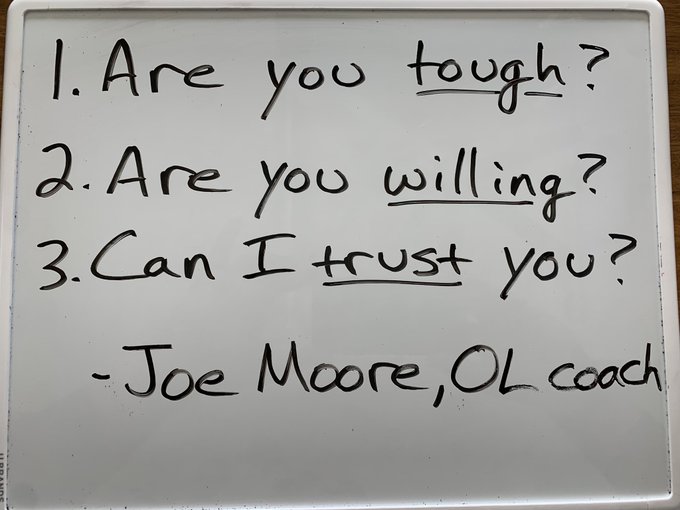 1. Are you tough?
2. Are you willing?
3. Can I trust you?
-Joe Moore, OL coach